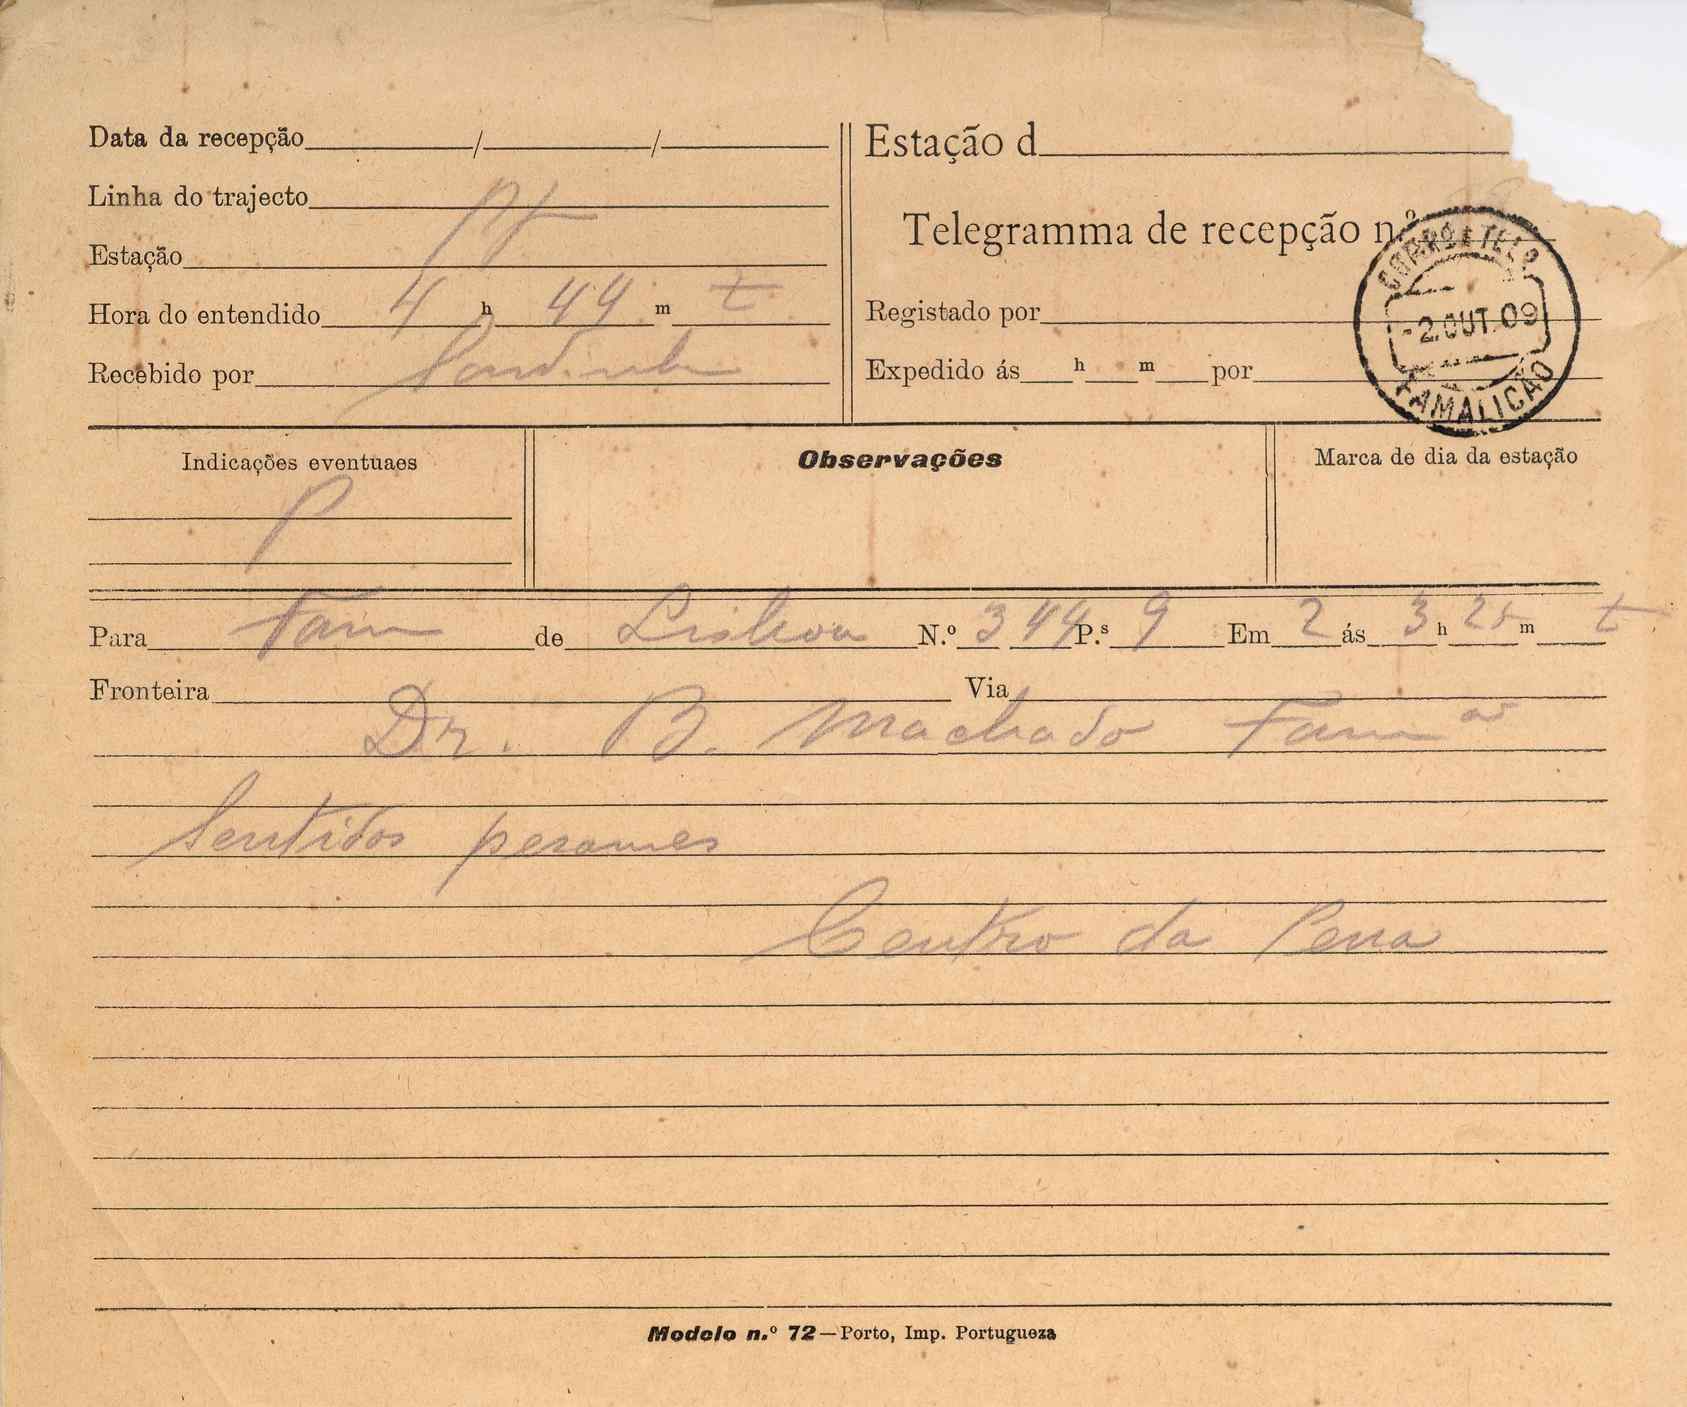 Data da recepção / /
Linha do trajecto
Estação Pf
Hora do entendido 4 h 49 m t
Recebido por
Estação d
Telegramma de recepção n.º
Registado por
Expedido ás h m por
CORRO E TELO
-2.OUT.09
FAMALICÃO
Indicações eventuaes
P
Observações
Marca de dia da estação
Para Fam de Lisboa N.º 344 P.s 9 Em 2 ás 3 h 25 m t
Fronteira Via
Dr. B. Machado Fam ao
Sentidos pesames
Centro da Pena
Modelo n.º 72—Porto, Imp. Portugueza